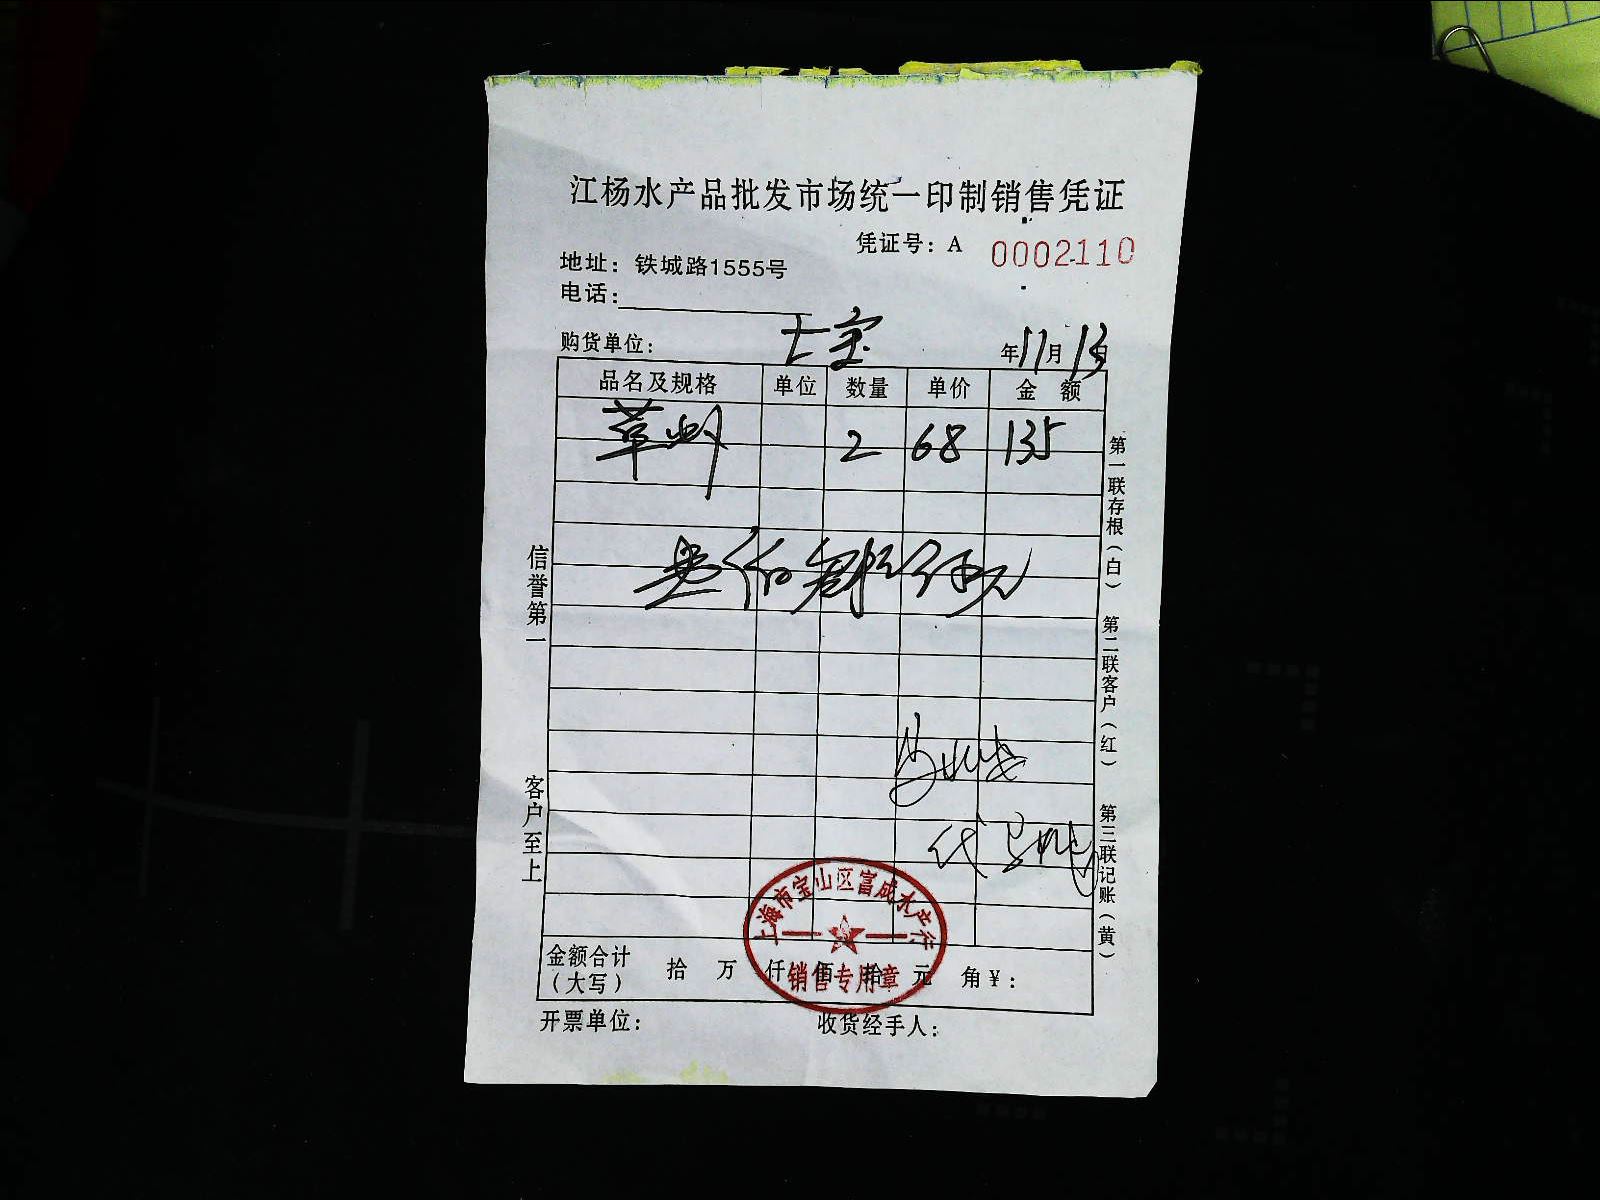 江杨水产品批发市场统一印制销售凭证
凭证号：A 0002110
地址：铁城路1555号
电话：
购货单位： 七宝 年11月13日
品名及规格 单位 数量 单价 金额
草虾 2 68 135
壹佰叁拾伍元
金额合计（大写） 拾 万 仟 佰 拾 元 角 ￥：
开票单位： 收货经手人：
信誉第一
客户至上
第一联存根（白）
第二联客户（红）
第三联记账（黄）
上海市宝山区富成水产行
销售专用章